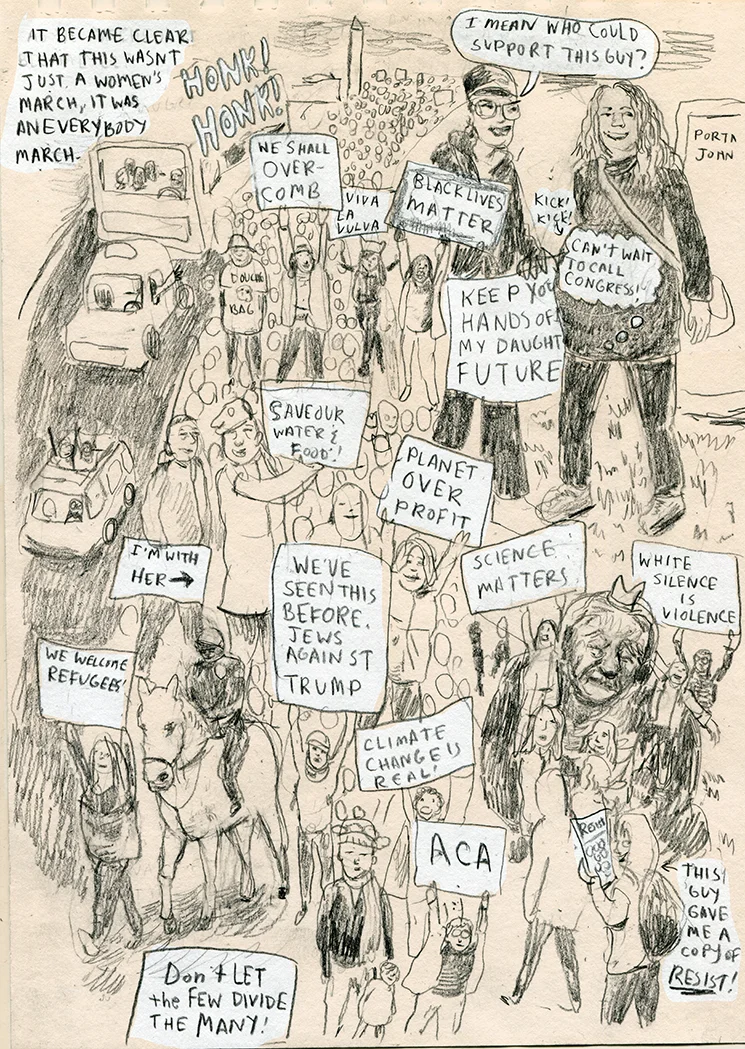 IT BECAME CLEAR
THAT THIS WASNT
JUST A WOMEN'S
MARCH, IT WAS
AN EVERYBODY
MARCH-
HONK!
HONK!
I MEAN WHO COULD
SUPPORT THIS GUY?
PORTA
JOHN
WE SHALL
OVER-
COMB
VIVA
LA
VULVA
BLACK LIVES
MATTER
KICK!
KICK!
CAN'T WAIT
TO CALL
CONGRESS!
DOUCHE
BAG
KEEP YOU
HANDS OF
MY DAUGHT
FUTURE
SAVE OUR
WATER &
FOOD!
PLANET
OVER
PROFIT
I'M WITH
HER →
WE'VE
SEEN THIS
BEFORE.
JEWS
AGAINST
TRUMP
SCIENCE
MATTERS!
WHITE
SILENCE
IS
VIOLENCE
WE WELCOME
REFUGEES
CLIMATE
CHANGE IS
REAL!
ACA
RESIST
THIS
GUY
GAVE
ME A
COPY OF
RESIST!
Don't LET
the FEW DIVIDE
THE MANY!